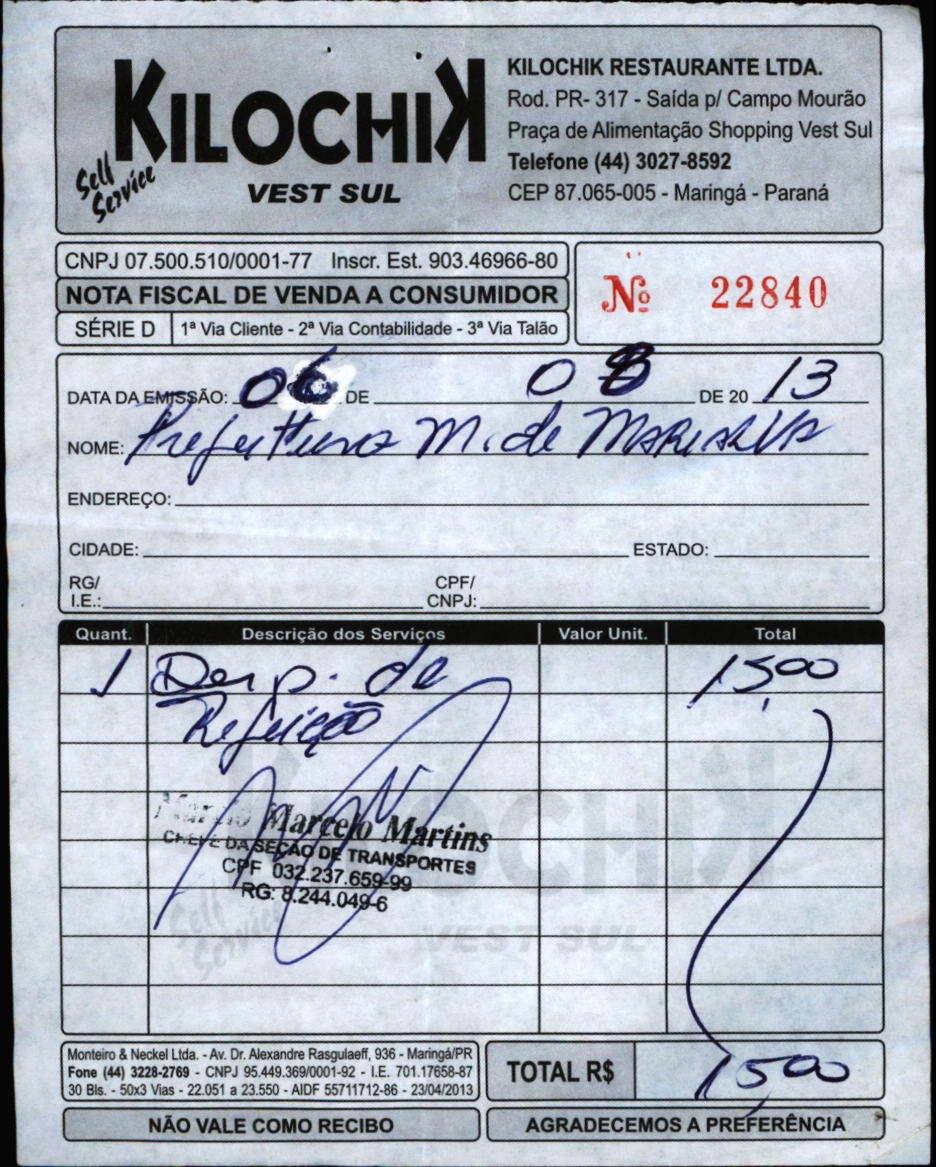 KILOCHIK
Self Service
VEST SUL
KILOCHIK RESTAURANTE LTDA.
Rod. PR- 317 - Saída p/ Campo Mourão
Praça de Alimentação Shopping Vest Sul
Telefone (44) 3027-8592
CEP 87.065-005 - Maringá - Paraná
CNPJ 07.500.510/0001-77 Inscr. Est. 903.46966-80
NOTA FISCAL DE VENDA A CONSUMIDOR
SÉRIE D 1ª Via Cliente - 2ª Via Contabilidade - 3ª Via Talão
Nº 22840
DATA DA EMISSÃO: 06 DE 08 DE 20 13
NOME: Prefeitura M. de MARIALVA
ENDEREÇO:
CIDADE: ESTADO:
RG/ CPF/
I.E.: CNPJ:
Quant. Descrição dos Serviços Valor Unit. Total
1 Desp. de 15,00
Refeição
Marcelo Martins
CHEFE DA SEÇÃO DE TRANSPORTES
CPF 032.237.659-99
RG: 8.244.049-6
KILOCHIK
Self Service
VEST SUL
Monteiro & Neckel Ltda. - Av. Dr. Alexandre Rasgulaeff, 936 - Maringá/PR
Fone (44) 3228-2769 - CNPJ 95.449.369/0001-92 - I.E. 701.17658-87
30 Bls. - 50x3 Vias - 22.051 a 23.550 - AIDF 55711712-86 - 23/04/2013
TOTAL R$ 15,00
NÃO VALE COMO RECIBO
AGRADECEMOS A PREFERÊNCIA